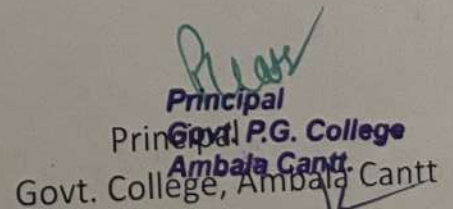 Principal
Govt. P.G. College
Ambala Cantt.
Principal
Govt. College, Ambala Cantt